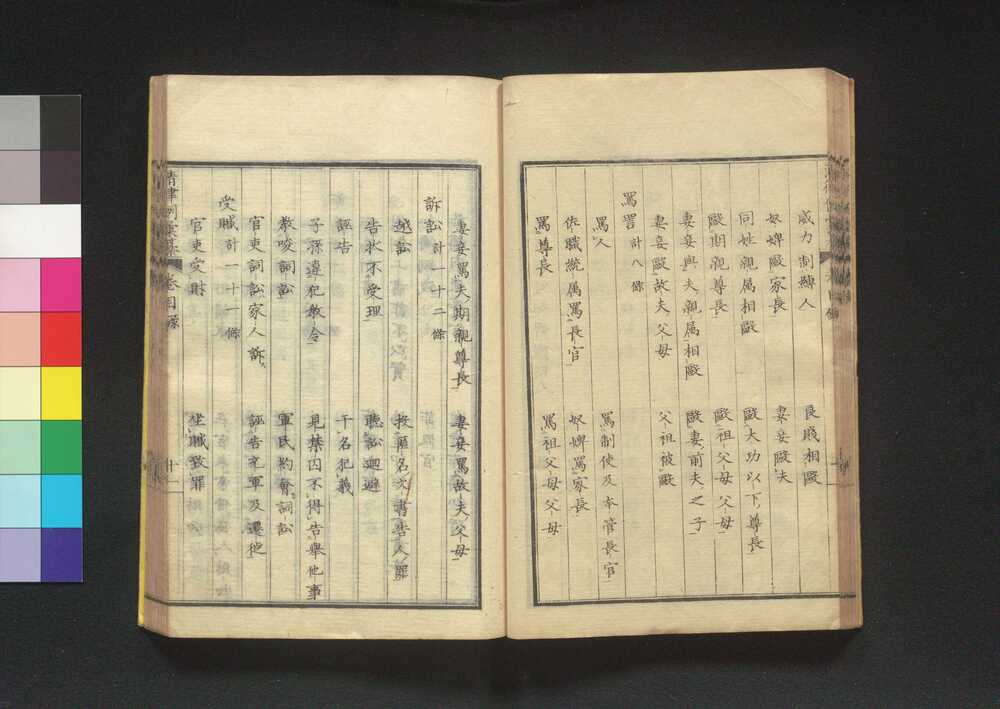 威力制縛人　良賤相毆
奴婢毆家長　妻妾毆夫
同姓親属相毆　毆大功以下尊長
毆期親尊長　毆祖父母父母
妻妾與夫親属相毆　毆妻前夫之子
妻妾毆故夫父母　父祖被毆
罵詈計八條
罵人　罵制使及本管長官
佐職統属罵長官　奴婢罵家長
罵尊長　罵祖父母父母
妻妾罵夫期親尊長　妻妾罵故夫父母
訴訟計一十二條
越訟　投匿名文書告人罪
告状不受理　聽訟迴避
誣告　干名犯義
子孫違犯教令　見禁囚不得告舉他事
教唆詞訟　軍民約會詞訟
官吏詞訟家人訴　誣告充軍及遷徙
受贓計一十一條
官吏受財　坐贓致罪
清律例彙纂　卷目録　十一